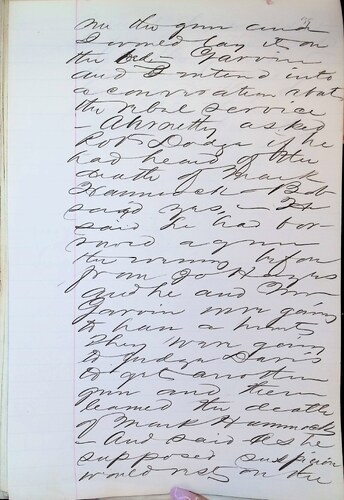 me the gun and
I would lay it on
the Garvin
and I entered into
a conversation about
the rebel service
- Abernethy asked
Rob Dodge if he
had heard of the
death of Mark
Hammock - Bob
said yes, - He
said he had bor-
rowed a gun
the evening before
from Jo Hayes
and he and Wm
Garvin were going
to have a hunt
They were going
to Judge Davis
to get another
gun and there
learned the death
of Mark Hammock
- And said he
supposed suspicion
would rest on the